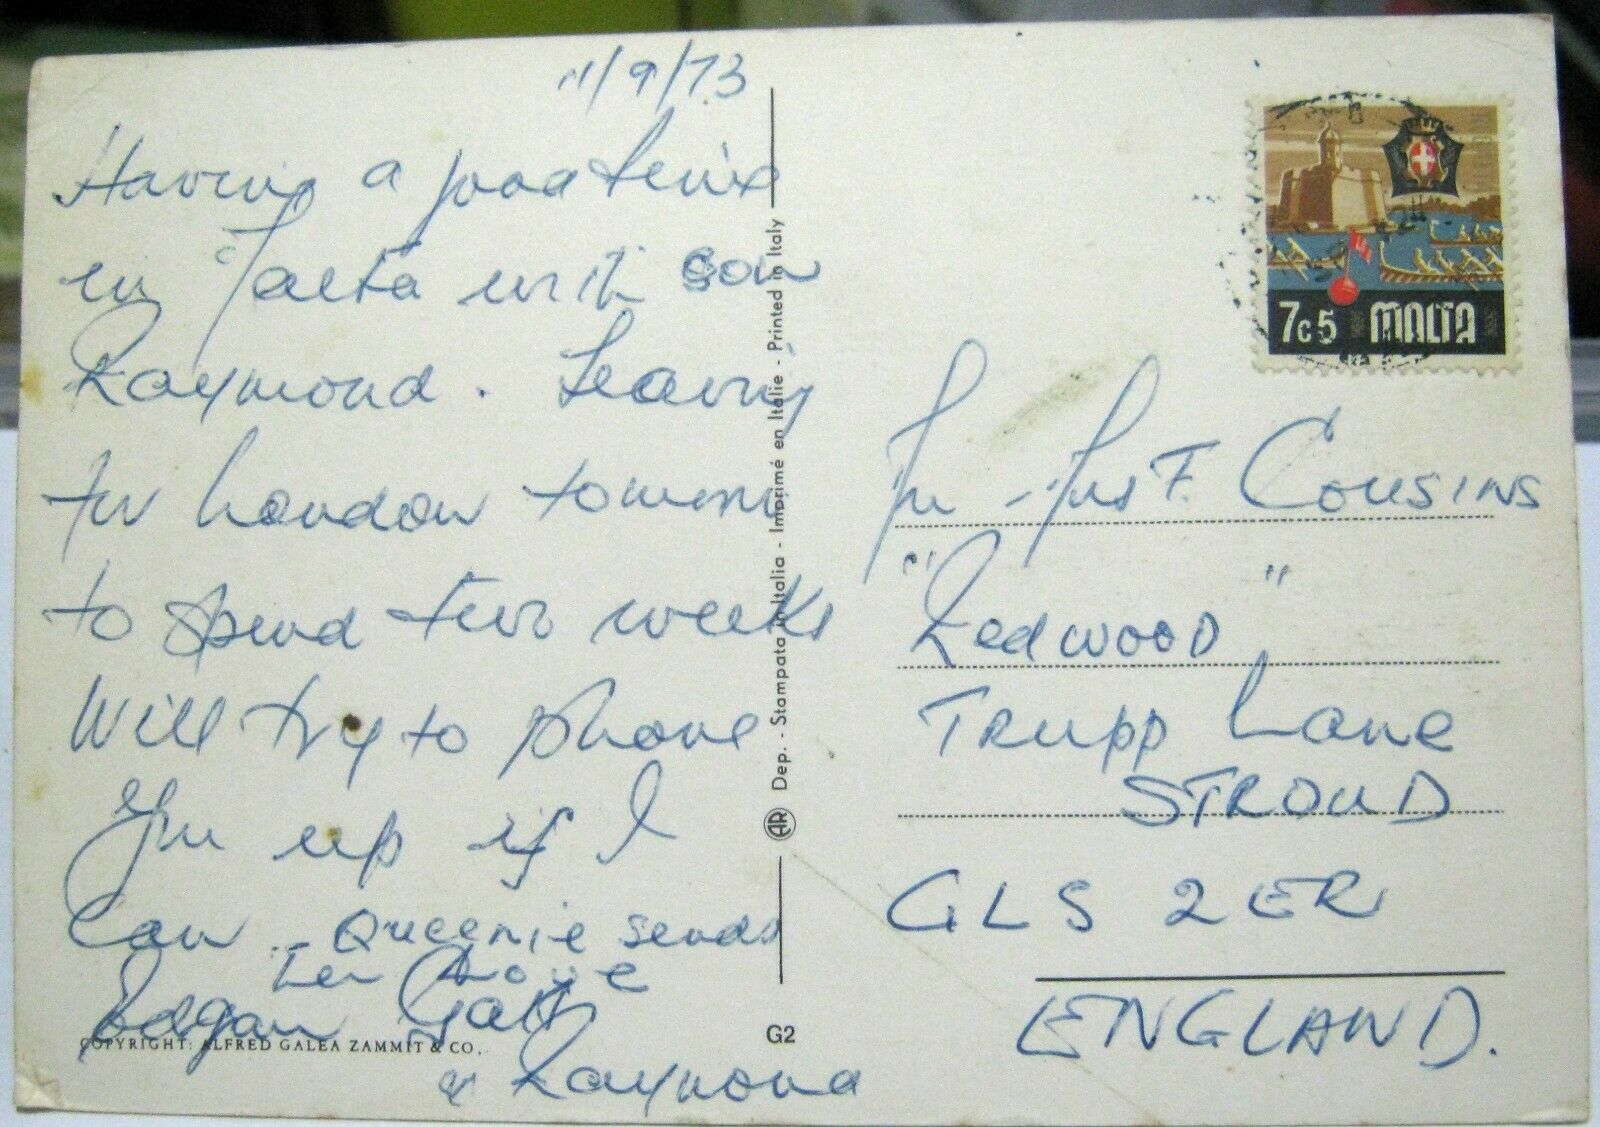 11/9/73
Having a good time
in Malta with son
Raymond. Leaving
for London
to spend two weeks
Will try to phone
You up if I
Can - Queenie sends
her Love
Galt
& Raymond
COPYRIGHT: ALFRED GALEA ZAMMIT & CO.
AR Dep. - Stampata in Italia - Imprimé en Italie - Printed in Italy
G2
7c5 MALTA
F. COUSINS
"Redwood"
TRUPP Lane
STROUD
GLS 2ER
ENGLAND.